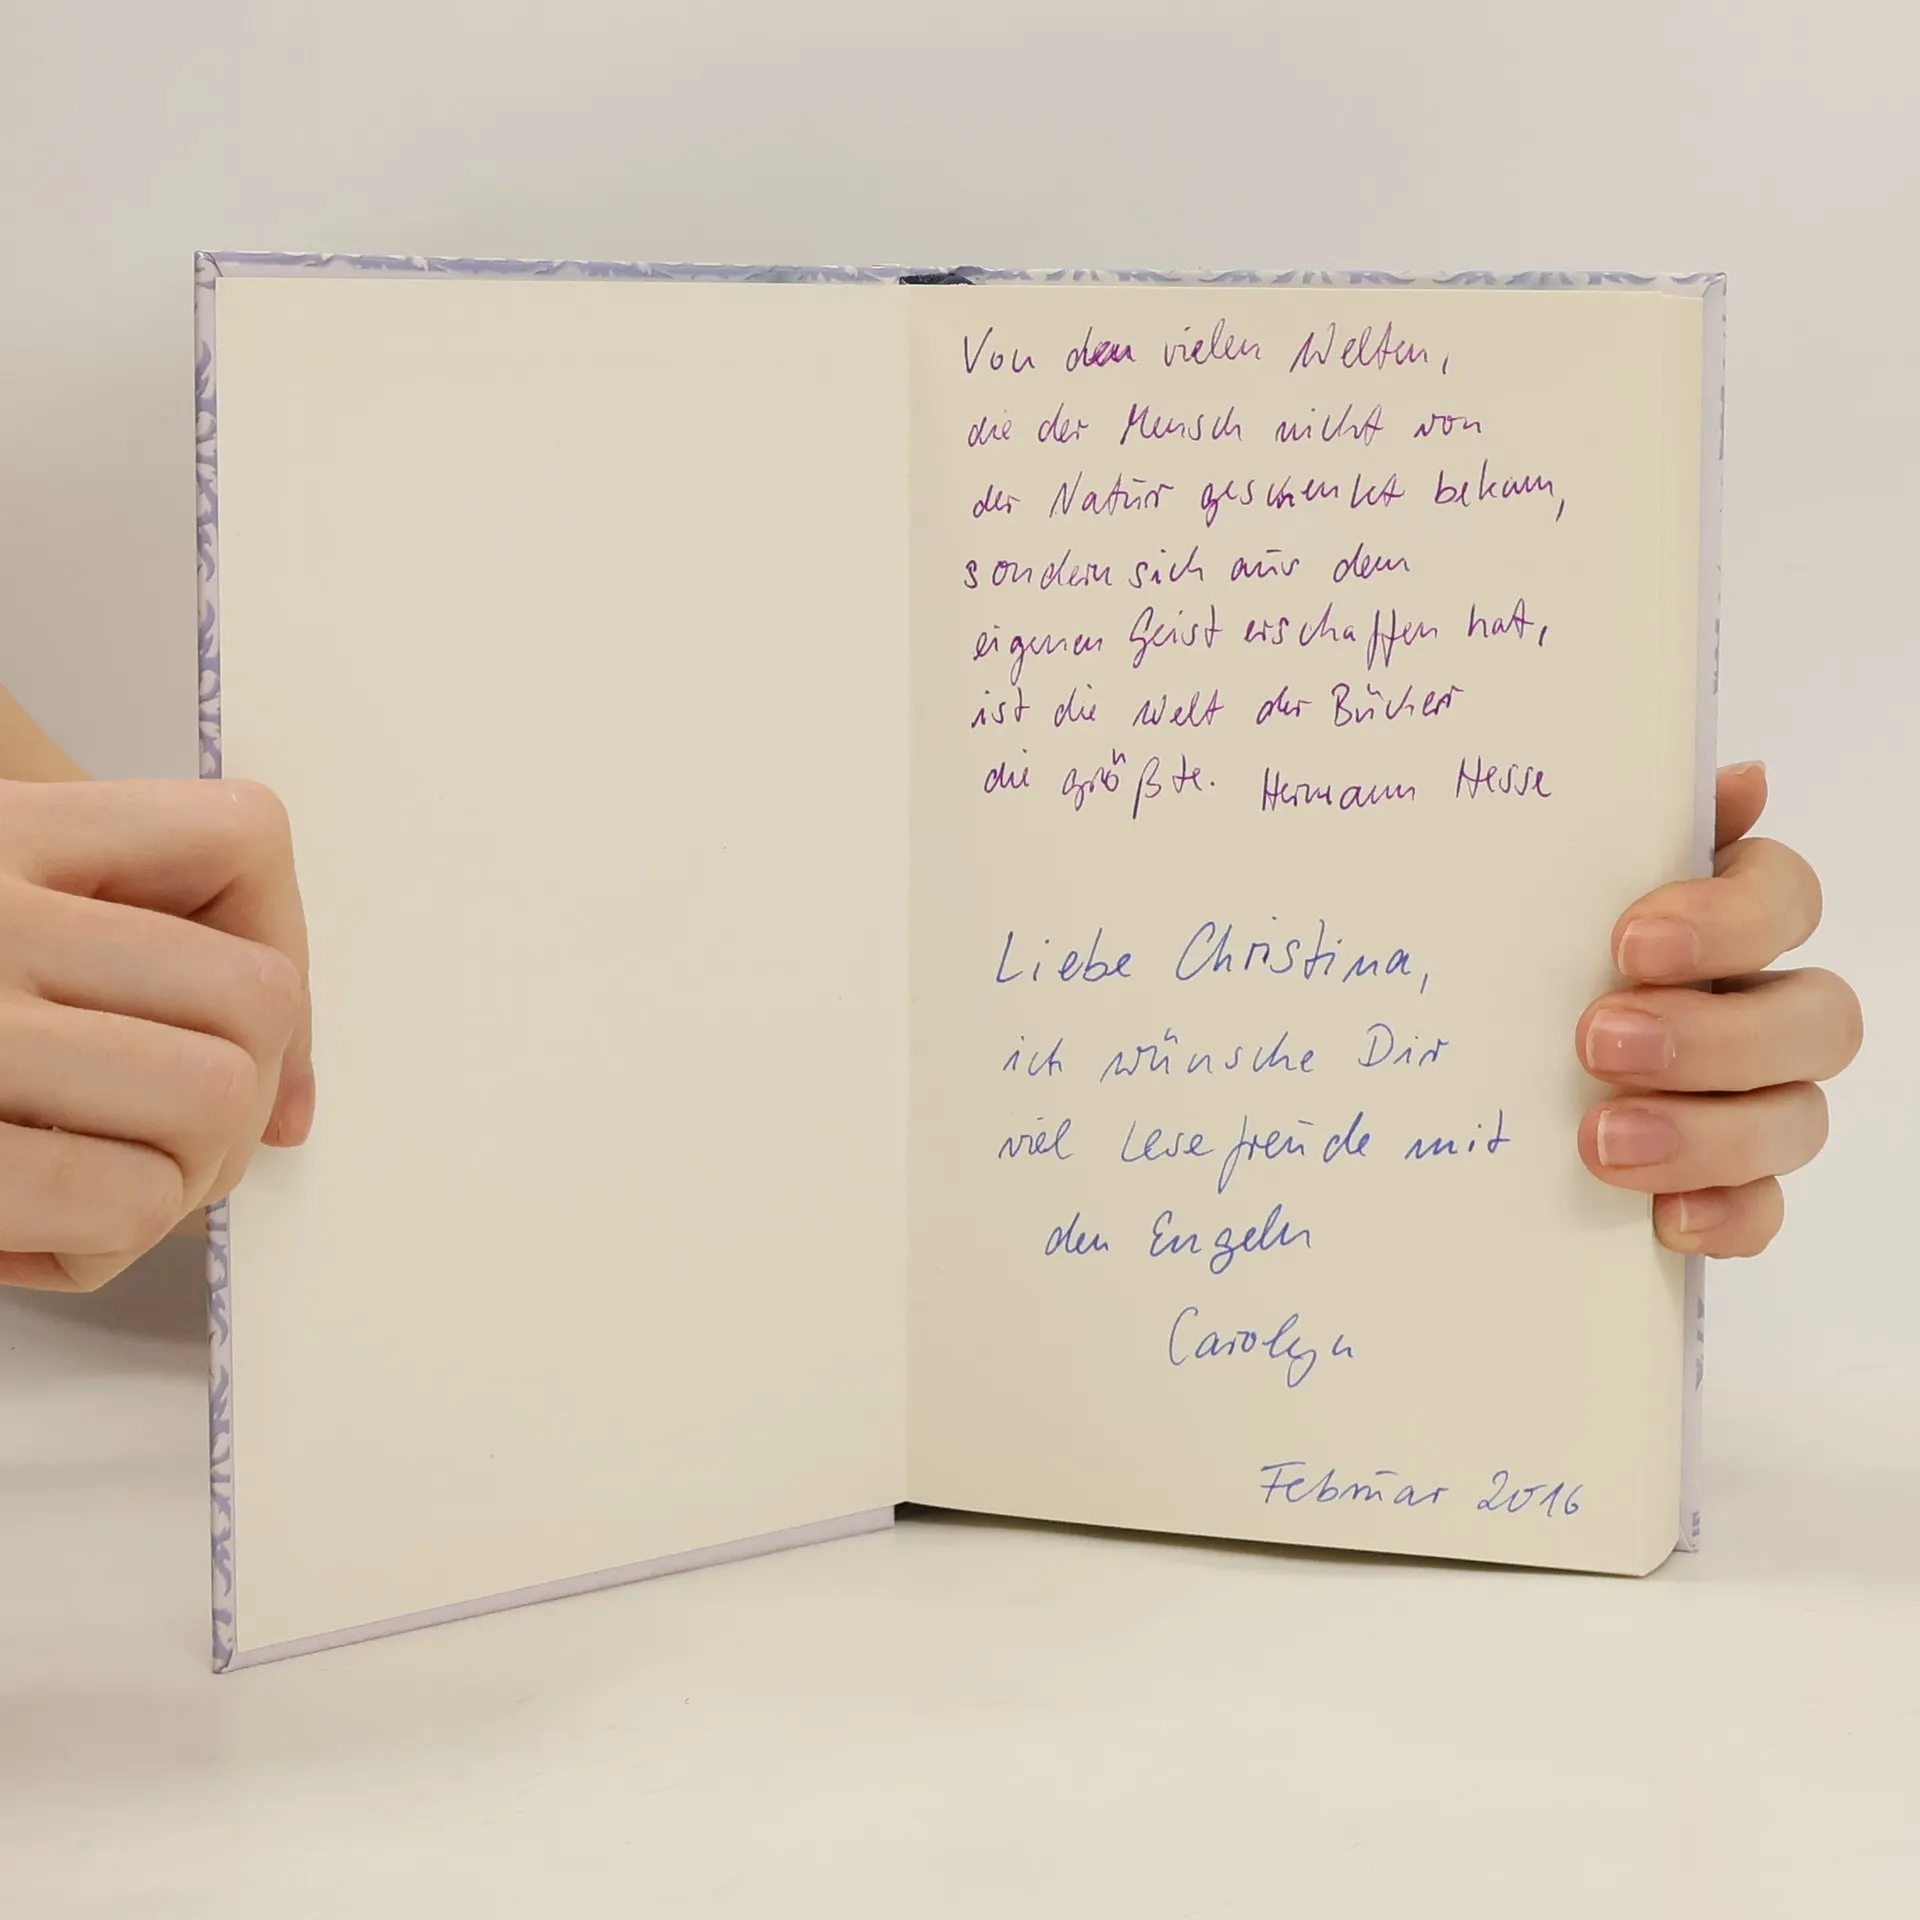 Von den vielen Welten,
die der Mensch nicht von
der Natur geschenkt bekam,
sondern sich aus dem
eigenen Geist erschaffen hat,
ist die Welt der Bücher
die größte. Hermann Hesse
Liebe Christina,
ich wünsche Dir
viel Lesefreude mit
den Engeln
Carolyn
Februar 2016